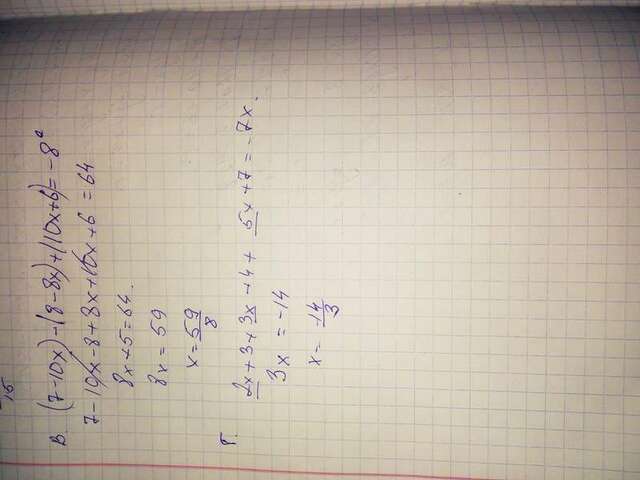 15
В. (7-10x)-(8-8x)+(10x+6)=-8²
7-10x-8+8x+10x+6=64
8x+5=64.
8x=59
x=59/8
Г. 2x+3+3x-4+5x+7=-7x.
3x=-14
x=-14/3